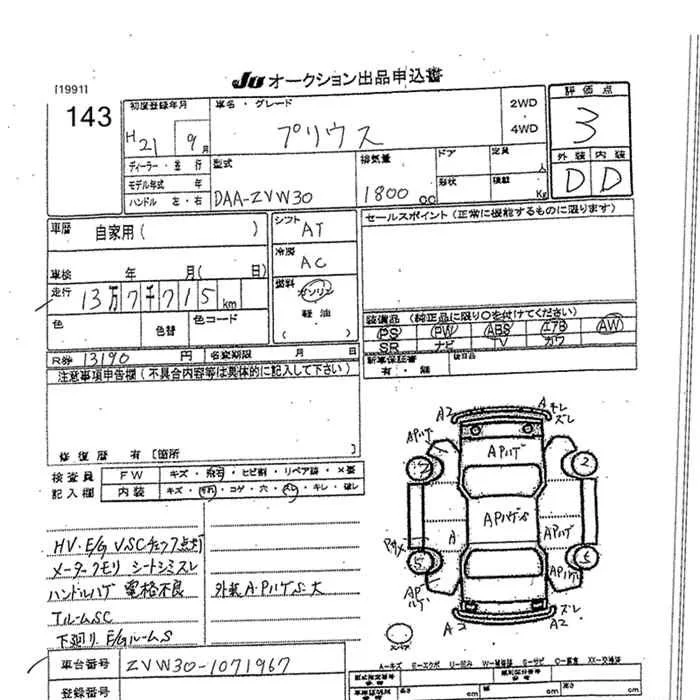 JU オークション出品申込書
[1991]
143
初度登録年月
H 21 9月
車名・グレード
プリウス
2WD
・
4WD
評価点
3
外装 内装
D D
ディーラー・並行
モデル年式 年
ハンドル 左・右
型式
DAA-ZVW30
排気量
1800 cc
ドア
定員 人
形状
積載 Kg
車歴 自家用( )
車検 年 月( 日)
走行 13万7千715km
色
色替
色コード
シフト
AT
冷房
AC
燃料
ガソリン
軽油
( )
セールスポイント(正常に機能するものに限ります)
装備品(純正品に限り○を付けてください)
PS PW ABS エアB AW
SR ナビ TV カワ
R券 13190 円
名変期限 月 日
新車保証書
有・無
後日品
注意事項申告欄(不具合内容等は具体的に記入して下さい)
修復歴 有〔箇所 〕
検査員
記入欄
FW キズ・飛石・ヒビ割・リペア跡・×要
内装 キズ・汚れ・コゲ・穴・スレ・キレ・破レ
HV・E/G VSCチェック点灯
メータークモリ シートシミスレ
ハンドルハゲ 電格不良
外装A・PハゲS・大
TルームSC
下廻り E/GルームS
A2
A キレ
ズレ
APハゲ
APハゲ
APハゲS
A
APハゲ
APハゲ
APハゲ
A2
ズレ
A2
車台番号 ZVW30-1071967
登録番号
A−キズ E−エクボ U−凹み W−補修跡 S−サビ C−腐食 XX−交換済
長さ cm